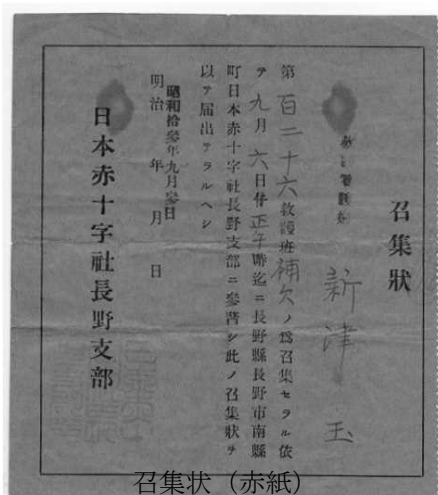 召集狀
新津 玉
第百二十六救護班補欠ノ爲召集セラル依
テ九月六日午正午時迄ニ長野縣長野市南縣
町日本赤十字社長野支部ニ參著シ此ノ召集狀ヲ
以テ届出テラルヘシ
昭和拾參年九月參日
明治 年 月 日
日本赤十字社長野支部
召集状（赤紙）